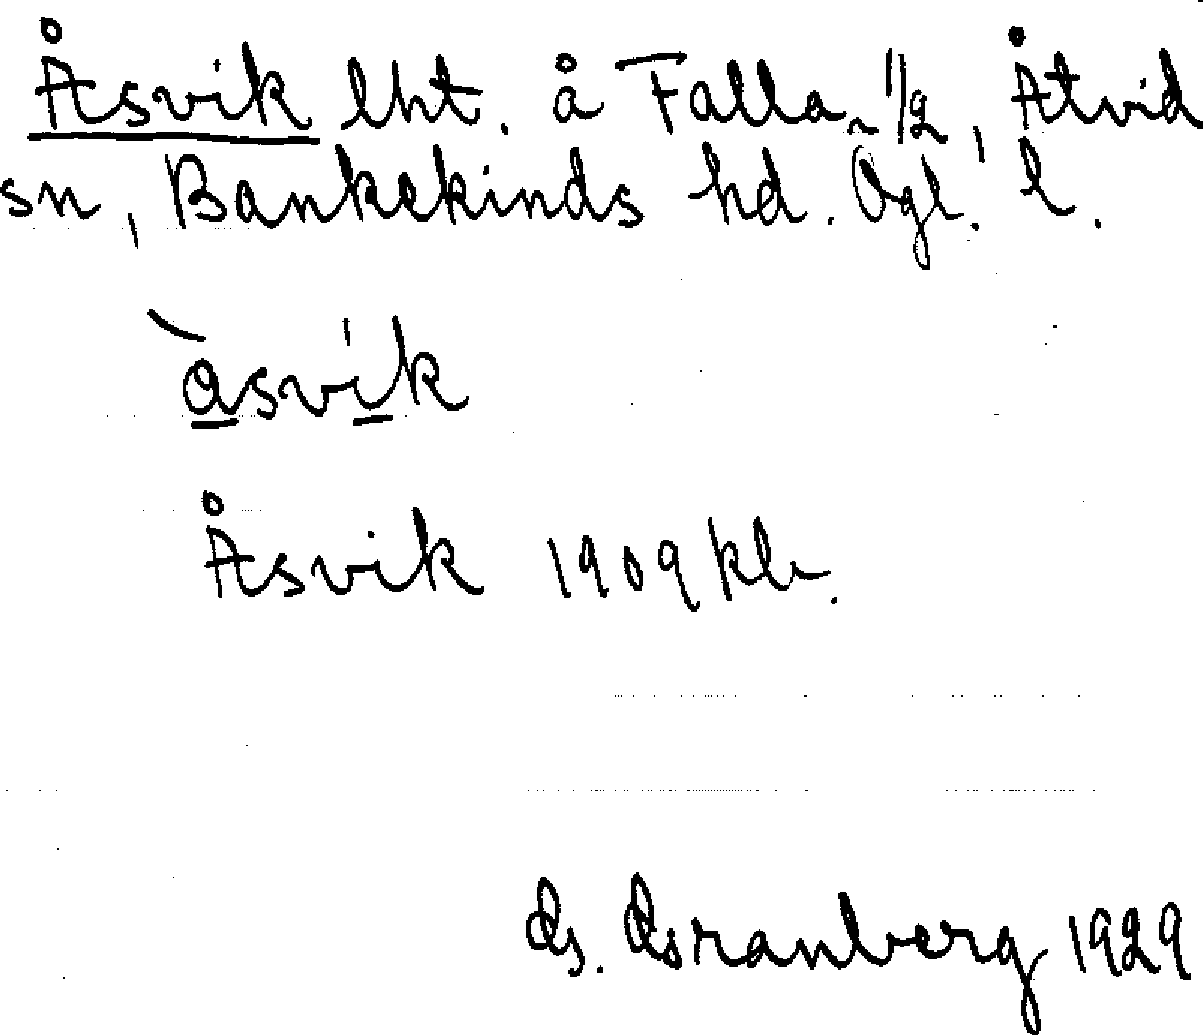 Åsvik lht. å Falla 1/2, Åtvid
sn, Bankekinds hd. Ögl. l.
`åsvik
Åsvik 1909 kb.
G. Granberg 1929